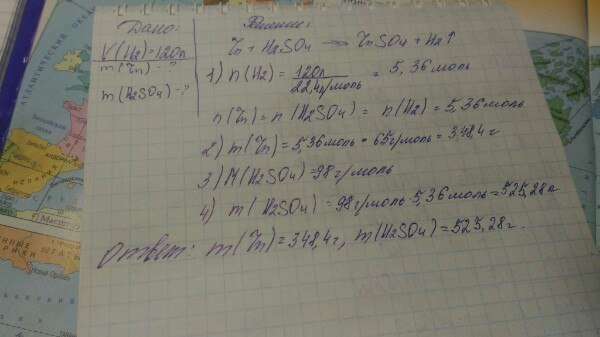 Дано:
V(H2)=120л
m(Zn) - ?
m(H2SO4) - ?
Решение:
Zn + H2SO4 → ZnSO4 + H2↑
1) n(H2) = 120л / 22,4л/моль = 5,36 моль
n(Zn) = n(H2SO4) = n(H2) = 5,36 моль
2) m(Zn) = 5,36моль * 65г/моль = 348,4 г
3) M(H2SO4) = 98 г/моль
4) m(H2SO4) = 98г/моль 5,36 моль = 525,28г
Ответ: m(Zn) = 348,4г, m(H2SO4) = 525,28г.
АТЛАНТИЧЕСКИЙ ОКЕАН